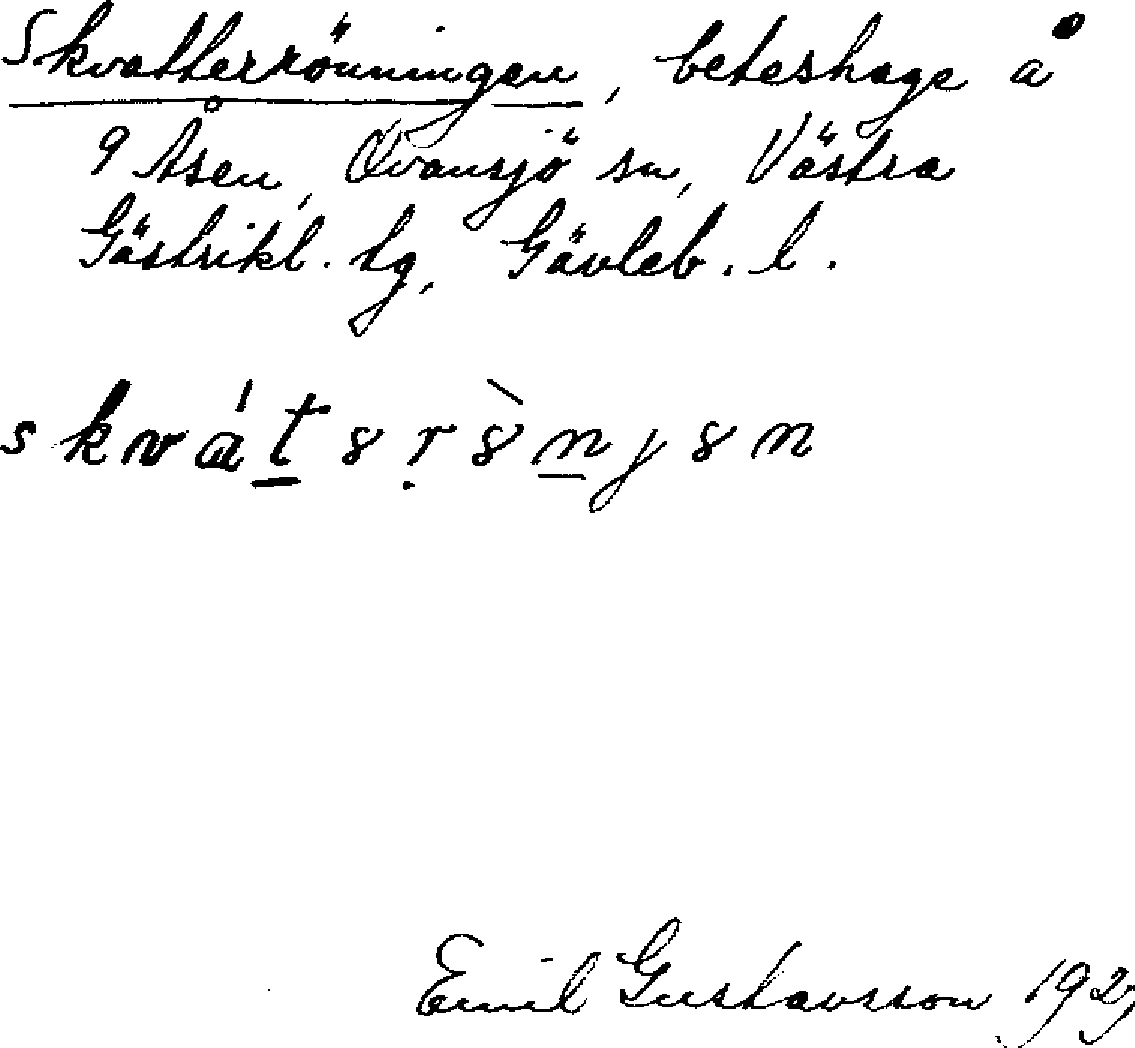 Skvatterrönningen, beteshage å
9 Åsen, Ovansjö sn, Västra
Gästrikl. tg, Gävleb. l.
skvátərə̀njən
Emil Gustavsson